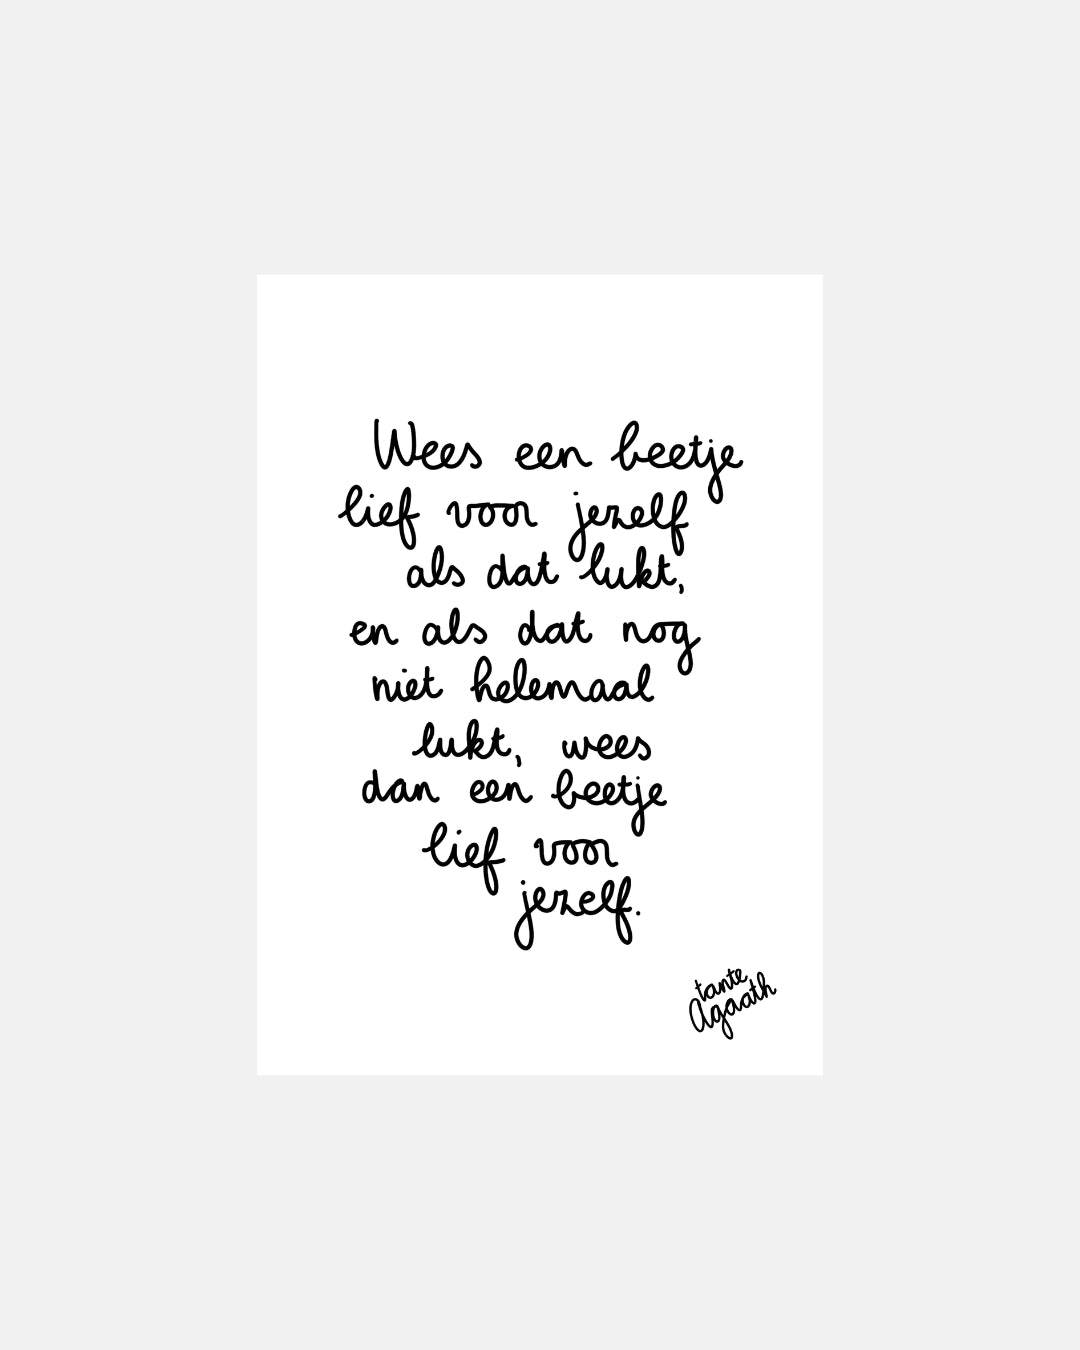 Wees een beetje
lief voor jezelf
als dat lukt,
en als dat nog
niet helemaal
lukt, wees
dan een beetje
lief voor
jezelf.
tante
Agaath